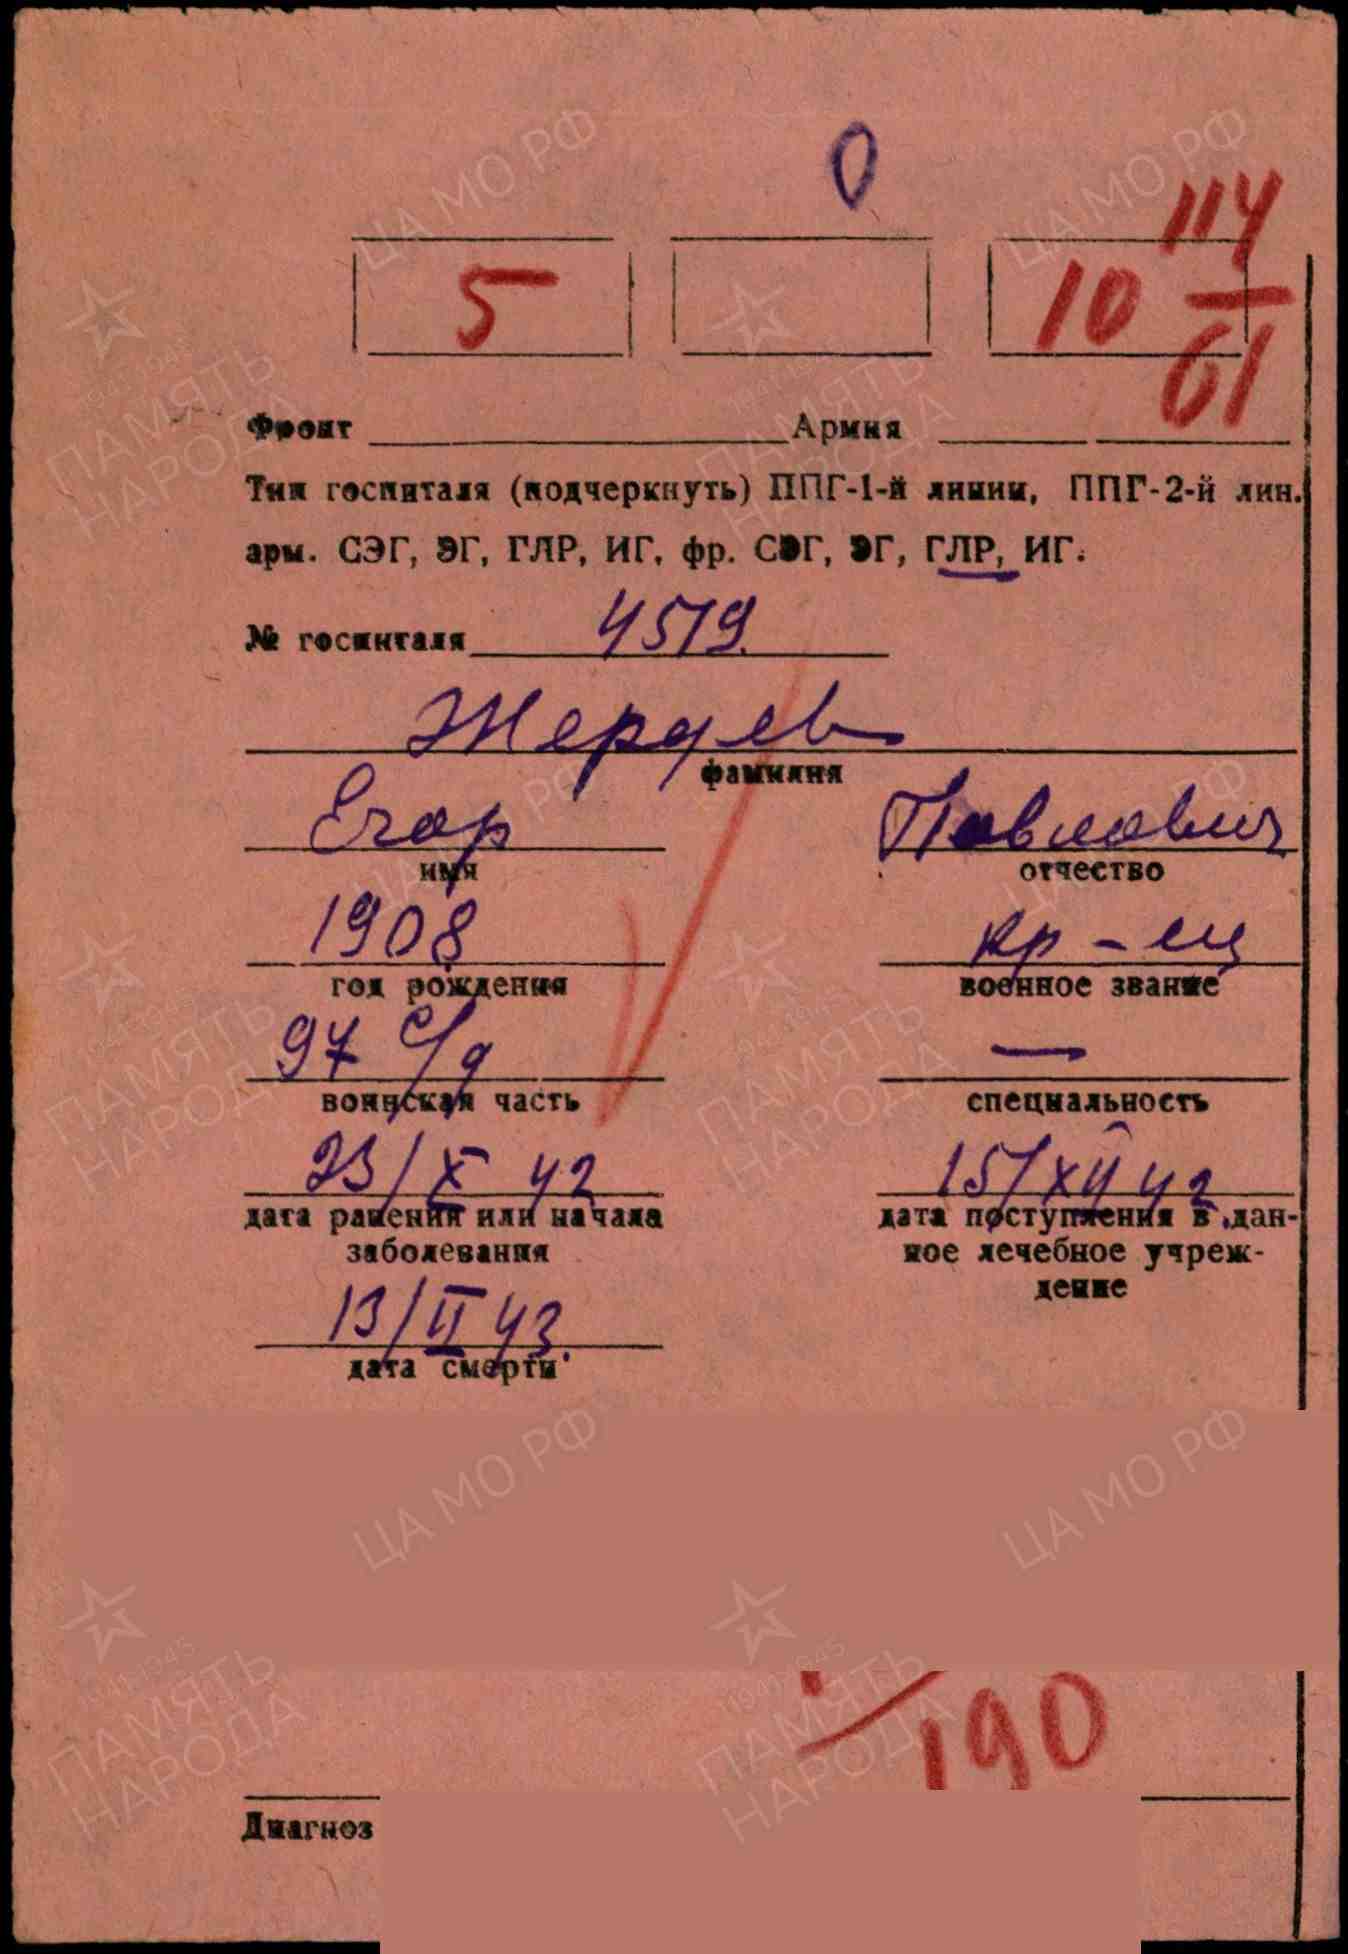 0
5
10 114
61
Фронт Армия
Тип госпиталя (подчеркнуть) ППГ-1-й линии, ППГ-2-й лин.
арм. СЭГ, ЭГ, ГЛР, ИГ, фр. СЭГ, ЭГ, ГЛР, ИГ.
№ госпиталя 4519.
Жердев
фамилия
Егор Павлович
имя отчество
1908 кр-ец
год рождения военное звание
97 с/д —
воинская часть специальность
23/X 42 15/XII 42
дата ранения или начала дата поступления в дан-
заболевания ное лечебное учреж-
дение
13/II 43.
дата смерти
/190
Диагноз
ЦА МО РФ
1941-1945
ПАМЯТЬ
НАРОДА